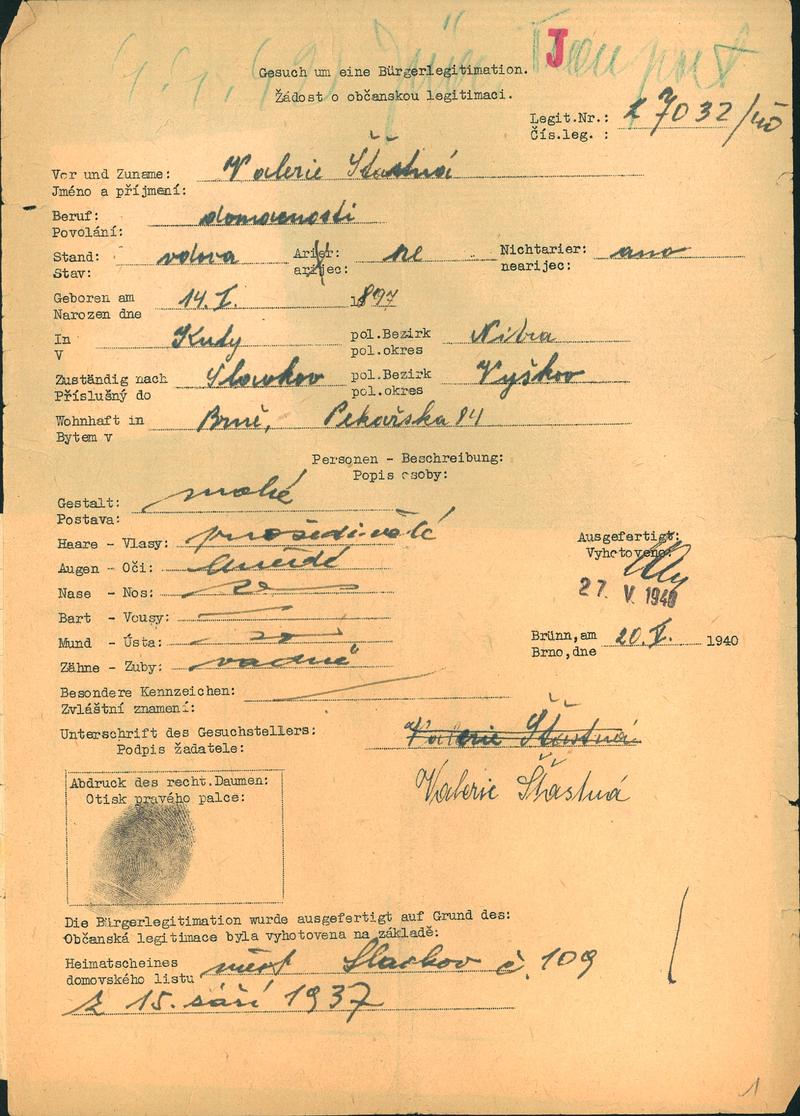 J
Gesuch um eine Bürgerlegitimation.
Žádost o občanskou legitimaci.
Legit.Nr.: 27032/40
Čís.leg. :
Vor und Zuname: Valerie Šťastná
Jméno a příjmení:
Beruf: domacnosti
Povolání:
Stand: vdova Arier: ne Nichtarier: ano
Stav: arijec: nearijec:
Geboren am 14.I. 1897
Narozen dne
In Kuty pol.Bezirk Nitra
V pol.okres
Zuständig nach Slavkov pol.Bezirk Vyškov
Příslušný do pol.okres
Wohnhaft in Brně, Pekařska 84
Bytem v
Personen - Beschreibung:
Popis osoby:
Gestalt: malé
Postava:
Haare - Vlasy: prošedivělé
Augen - Oči: hnědé
Nase - Nos:
Bart - Vousy: —
Mund - Ústa:
Zähne - Zuby: vadné
Ausgefertigt:
Vyhotoveno:
27. V. 1940
Brünn,am 20.V. 1940
Brno,dne
Besondere Kennzeichen:
Zvláštní znamení:
Unterschrift des Gesuchstellers: Valerie Šťastná
Podpis žadatele:
Valerie Šťastná
Abdruck des recht.Daumen:
Otisk pravého palce:
Die Bürgerlegitimation wurde ausgefertigt auf Grund des:
Občanská legitimace byla vyhotovena na základě:
Heimatscheines Slavkov č. 109
domovského listu
z 15. září 1937
1